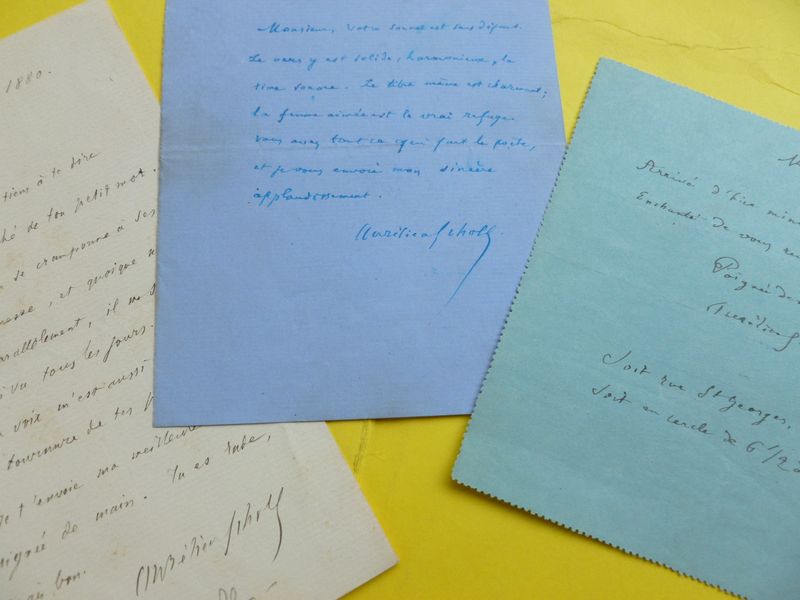 1880.
tiens à te dire
de ton petit mot.
se cramponne à ses
et quoique
parallèlement, il
vu tous les jours.
voix m'est aussi
tournure de tes
t'envoie ma meilleure
poignée de main. Tu es
bon.
Aurélien Scholl
Monsieur, Votre sonnet est sans défaut.
Le vers y est solide, harmonieux, la
rime sonore. Le titre même est charmant;
la femme aimée est le vrai refuge.
Vous avez tout ce qui fait le poète,
et je vous envoie mon sincère
applaudissement.
Aurélien Scholl.
Arrivé d'hier
Enchanté de vous
Poignée de
Aurélien S
Soit rue St Georges,
Soit au cercle de 6 1/2